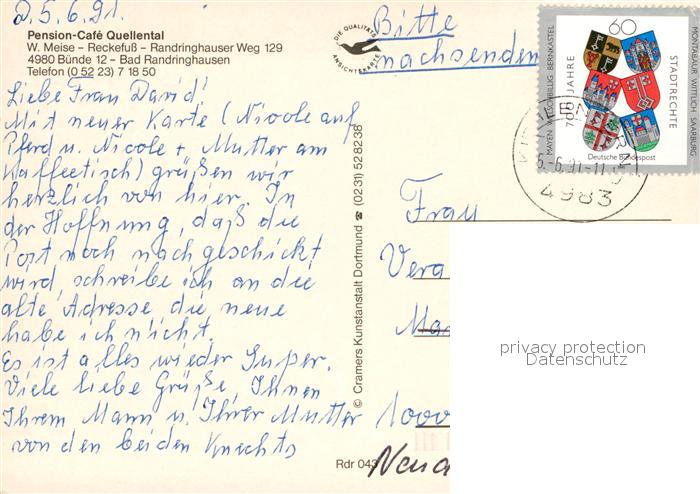 D. 5.6.91.
Pension-Café Quellental
W. Meise – Reckefuß – Randringhauser Weg 129
4980 Bünde 12 – Bad Randringhausen
Telefon (0 52 23) 7 18 50
Liebe Frau David!
Mit neuer Karte (Nicole auf
Pferd u. Nicole + Mutter am
Kaffeetisch) grüßen wir
herzlich von hier. In
der Hoffnung, daß die
Post noch nachgeschickt
wird, schreibe ich an die
alte Adresse, die neue
habe ich nicht.
Es ist alles wieder Super.
Viele liebe Grüße, Ihnen
Ihrem Mann u. Ihrer Mutter
von den beiden Knechts
DIE QUALITÄTS
ANSICHTSKARTE
© Cramers Kunstanstalt Dortmund ☎ (0231) 528238
Rdr 043
Bitte
nachsenden
60
700 JAHRE
STADTRECHTE
MAYEN WELSCHBILLIG BERNKASTEL
MONTABAUR WITTLICH SAARBURG
Deutsche Bundespost
5.-6.91-11
4983
Frau
Vera
1000
privacy protection
Datenschutz